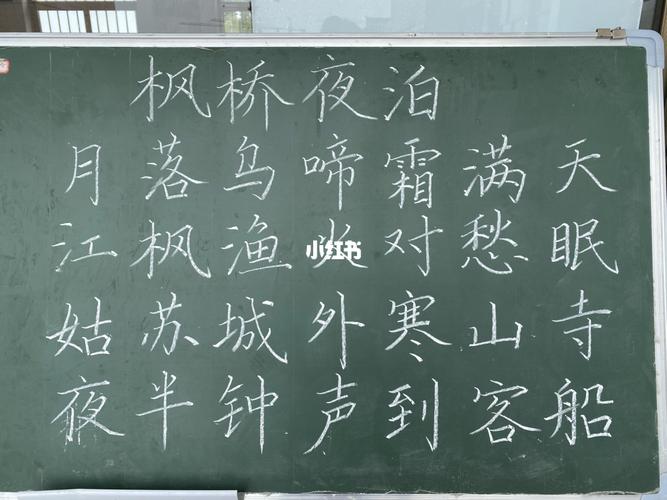 枫桥夜泊
月落乌啼霜满天
江枫渔火对愁眠
姑苏城外寒山寺
夜半钟声到客船
小红书